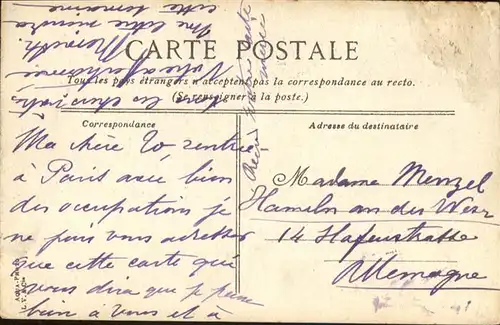 CARTE POSTALE
Tous les pays étrangers n'acceptent pas la correspondance au recto.
(Se renseigner à la poste.)
Correspondance
Adresse du destinataire
Ma chère rentrée
à Paris avec bien
des occupations je
ne puis vous adresser
que cette carte qui
vous dira que je pense
bien à vous et à
Madame Menzel
Hameln an der Weser
14 Hafenstrasse
Allemagne
votre affectionnée
Une lettre suivra
cette semaine